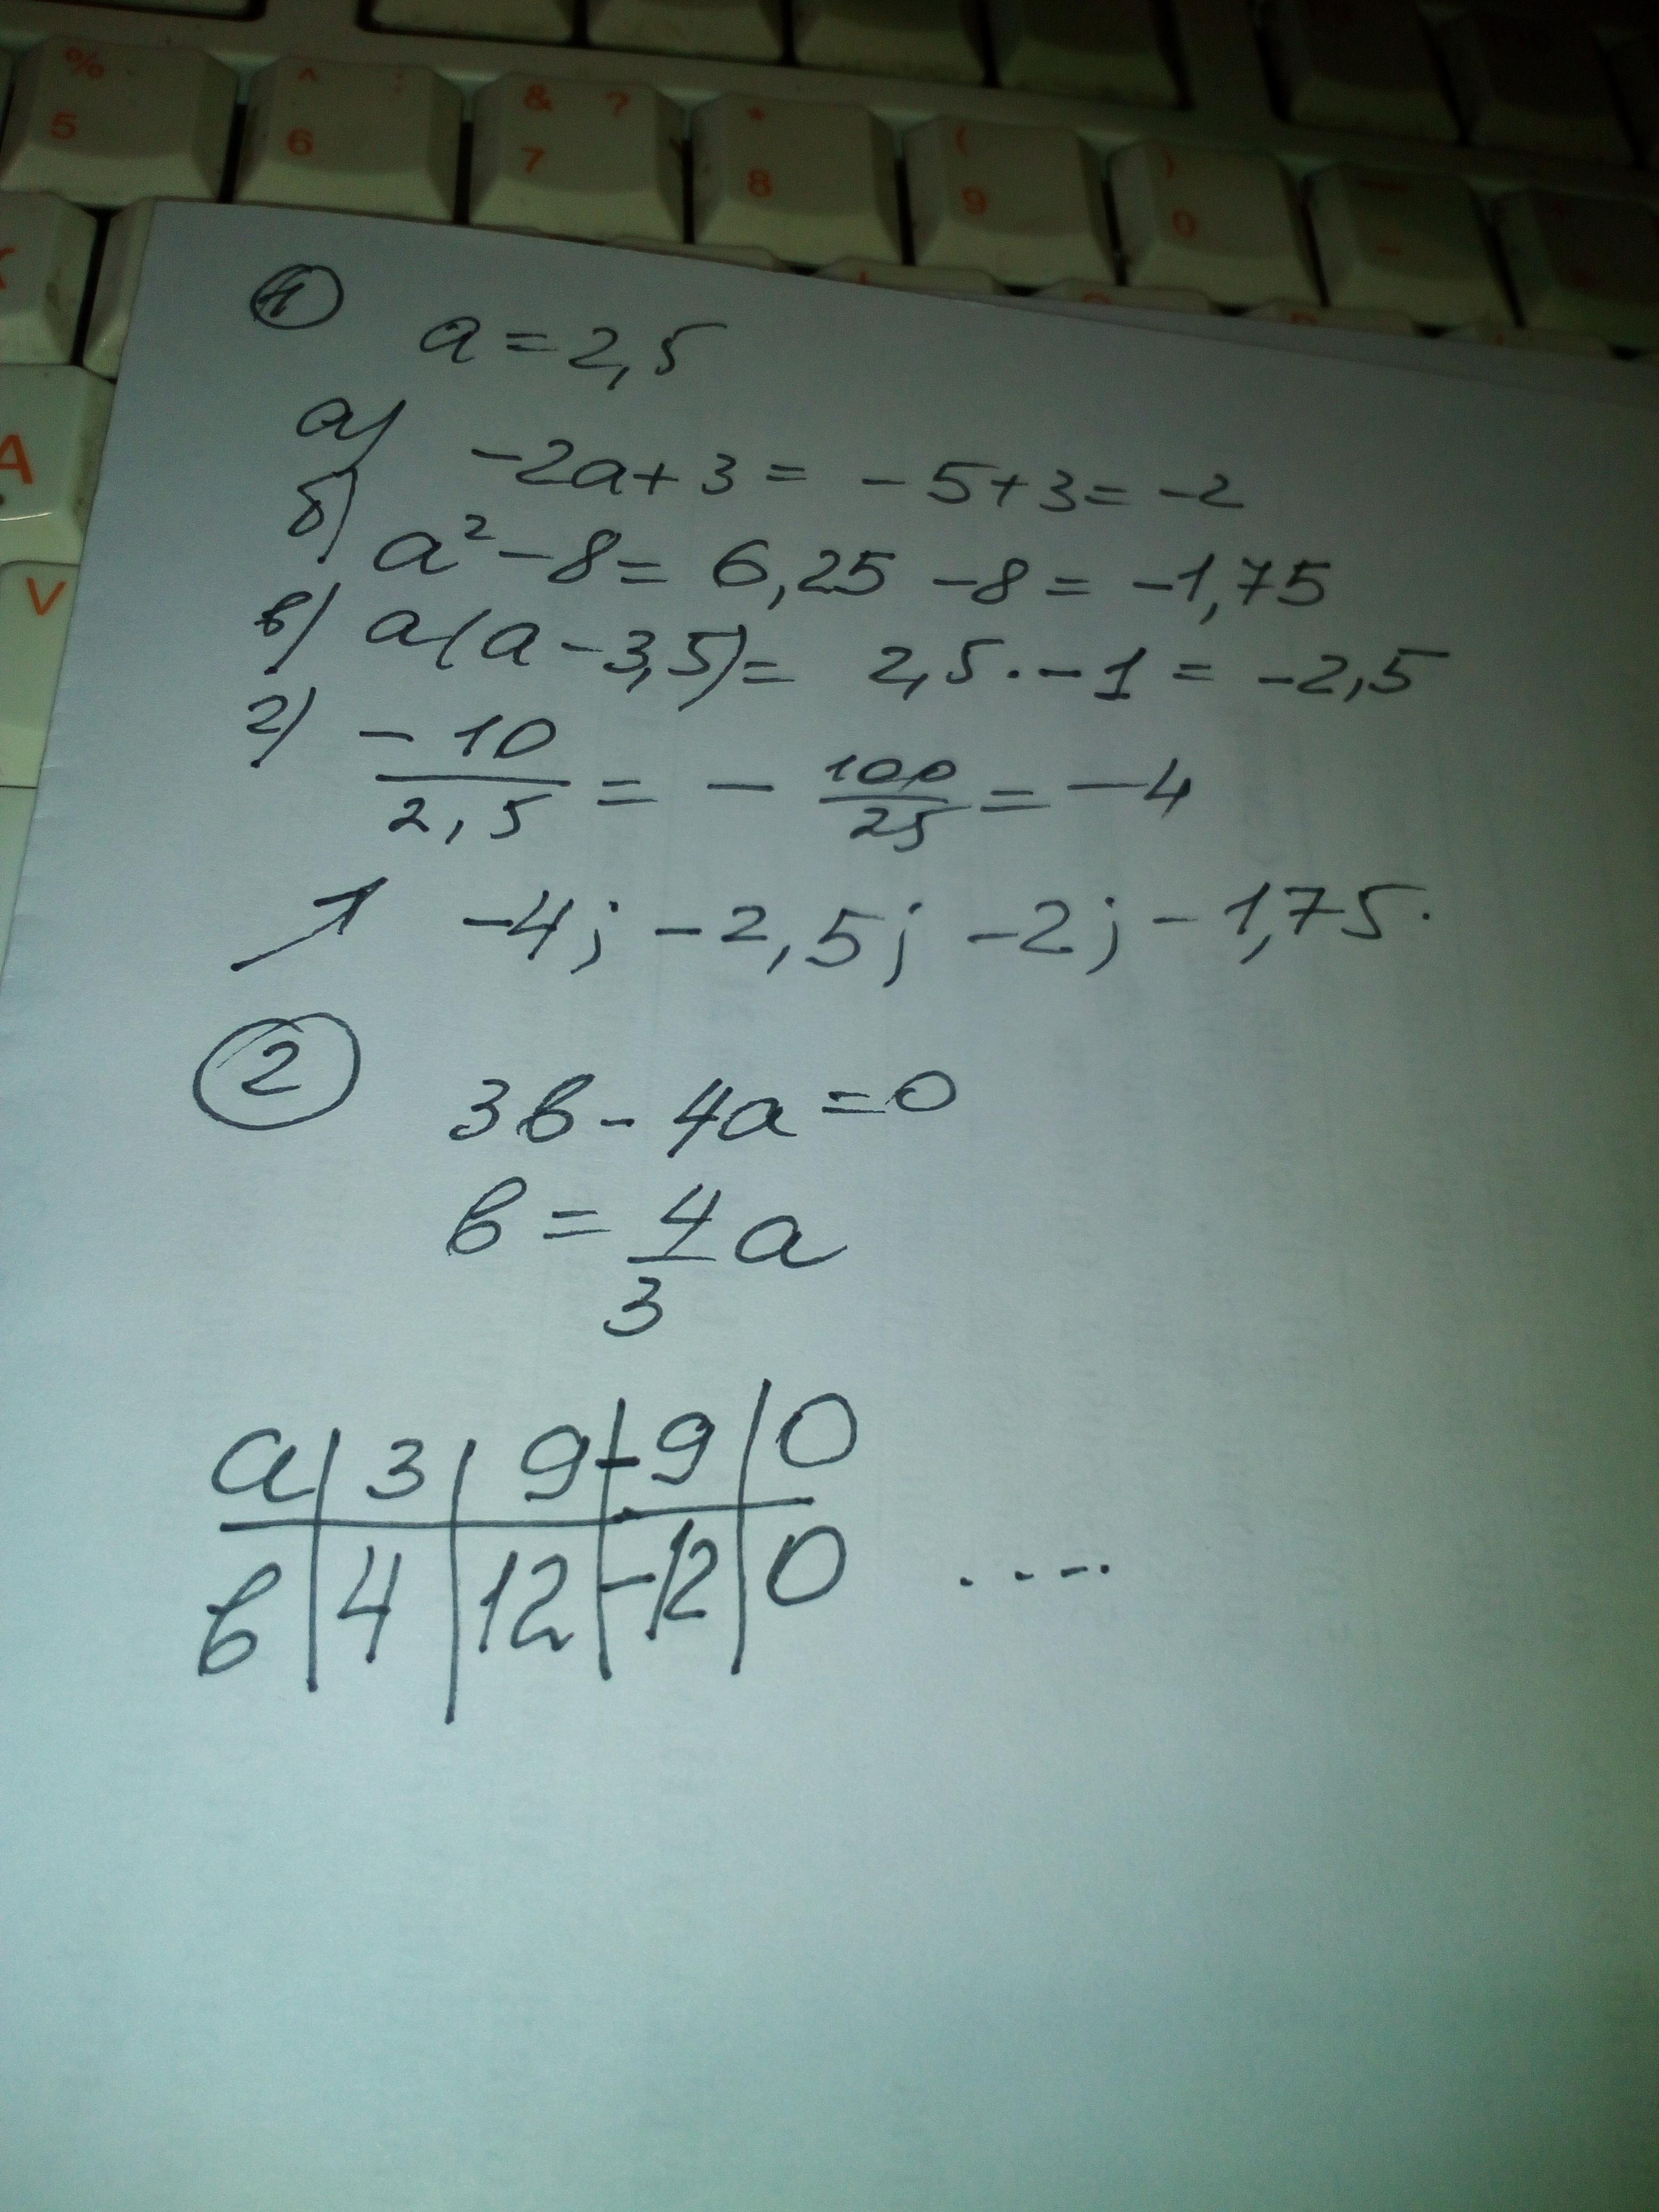 % 5 ^ : 6 & ? 7 * 8 ( 9 ) 0 -
A
V
① a = 2,5
а) -2a + 3 = -5 + 3 = -2
б) a² - 8 = 6,25 - 8 = -1,75
в) a(a - 3,5) = 2,5 · -1 = -2,5
г) -10/2,5 = - 100/25 = -4
↗ -4; -2,5; -2; -1,75.
② 3в - 4а = 0
в = 4/3 а
а | 3 | 9 | -9 | 0
в | 4 | 12 | -12 | 0 ....